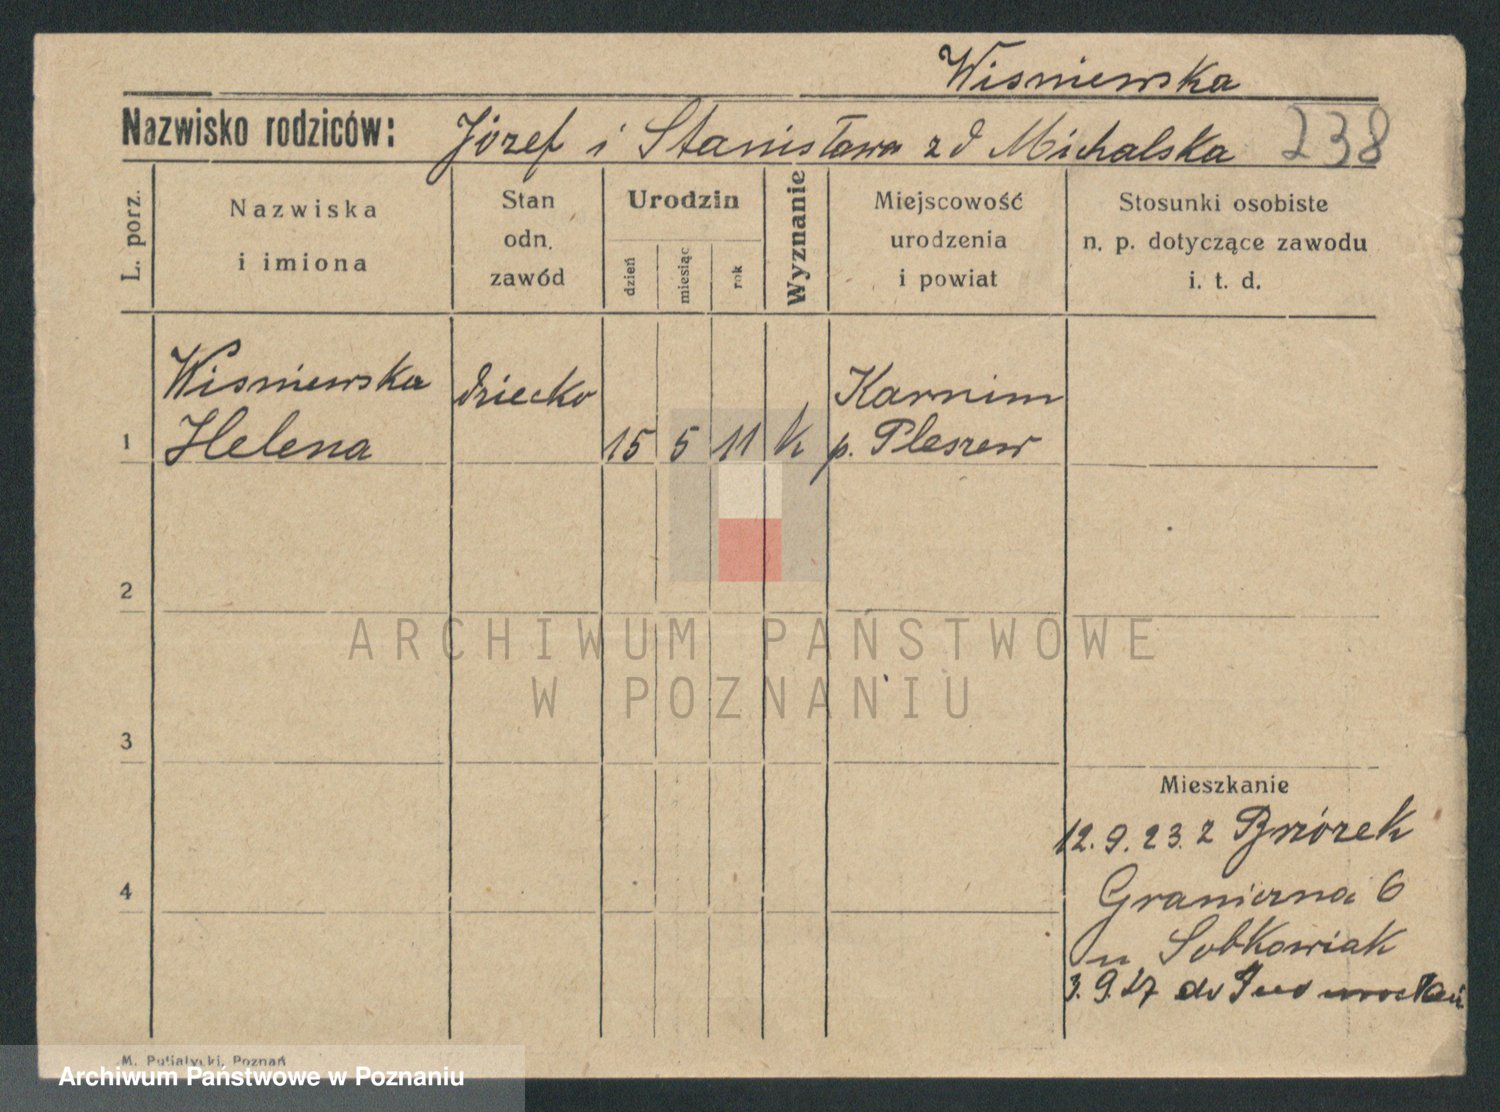 Wisniewska
Nazwisko rodziców: Józef i Stanisława z d Michalska 238
L. porz.
Nazwiska
i imiona
Stan
odn.
zawód
Urodzin
dzień
miesiąc
rok
Wyznanie
Miejscowość
urodzenia
i powiat
Stosunki osobiste
n. p. dotyczące zawodu
i. t. d.
Wisniewska dziecko Karnim
1 Helena 15 5 11 k p. Pleszew
2
ARCHIWUM PAŃSTWOWE
W POZNANIU
3
Mieszkanie
12. 9. 23. z Brzózek
4
Graniczna 6
u Sobkowiak
3. 9. 27 do
M. Putiatycki, Poznań
Archiwum Państwowe w Poznaniu